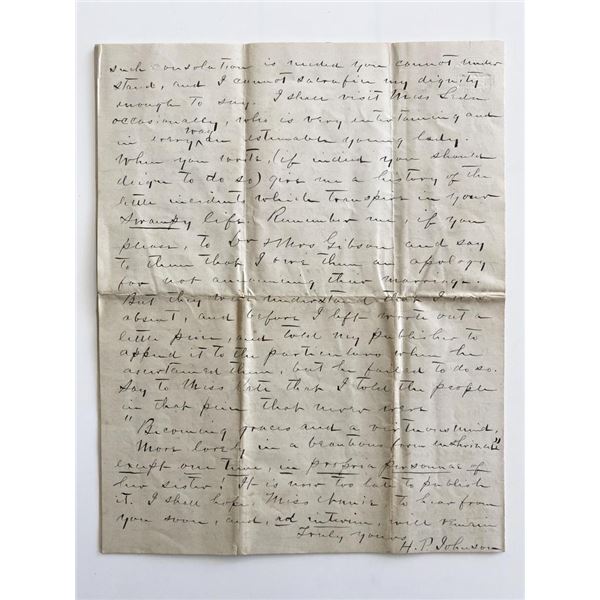 such consolation is needed you cannot under
stand, and I cannot sacrifice my dignity
enough to say. I shall visit Miss
occasionally, who is very entertaining and
in every way an estimable young lady.
When you write, (if indeed you should
deign to do so) give me a history of the
little incidents which transpire in your
Swampy life. Remember me, if you
please, to Dr & Mrs Gibson and say
to them that I owe them an apology
for not announcing their marriage.
But they will understand that I was
absent, and before I left wrote out a
little piece, and told my publisher to
append it to the particulars when he
ascertained them, but he failed to do so.
Say to Miss Kate that I told the people
in that piece that never were
"Becoming graces and a virtuous mind,
More lovely in a beauteous form enshrined"
except one time, in propria personae of
her sister! It is now too late to publish
it. I shall hope Miss to hear from
you soon, and, ad interim, will remain
Truly yours
H. P. Johnson